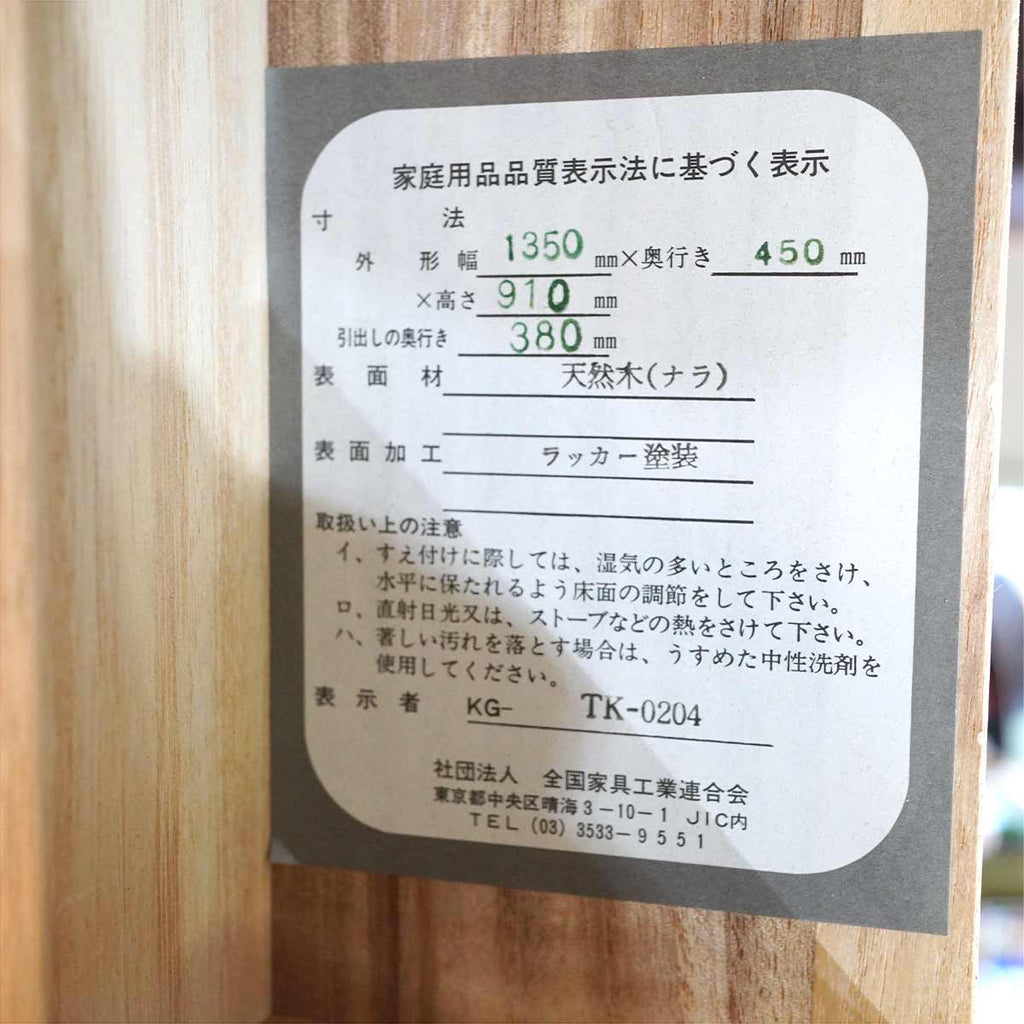 家庭用品品質表示法に基づく表示
寸法
外形幅 1350 mm×奥行き 450 mm
×高さ 910 mm
引出しの奥行き 380 mm
表面材 天然木(ナラ)
表面加工 ラッカー塗装
取扱い上の注意
イ、すえ付けに際しては、湿気の多いところをさけ、
水平に保たれるよう床面の調節をして下さい。
ロ、直射日光又は、ストーブなどの熱をさけて下さい。
ハ、著しい汚れを落とす場合は、うすめた中性洗剤を
使用してください。
表示者 KG- TK-0204
社団法人 全国家具工業連合会
東京都中央区晴海3-10-1 JIC内
TEL (03) 3533-9551